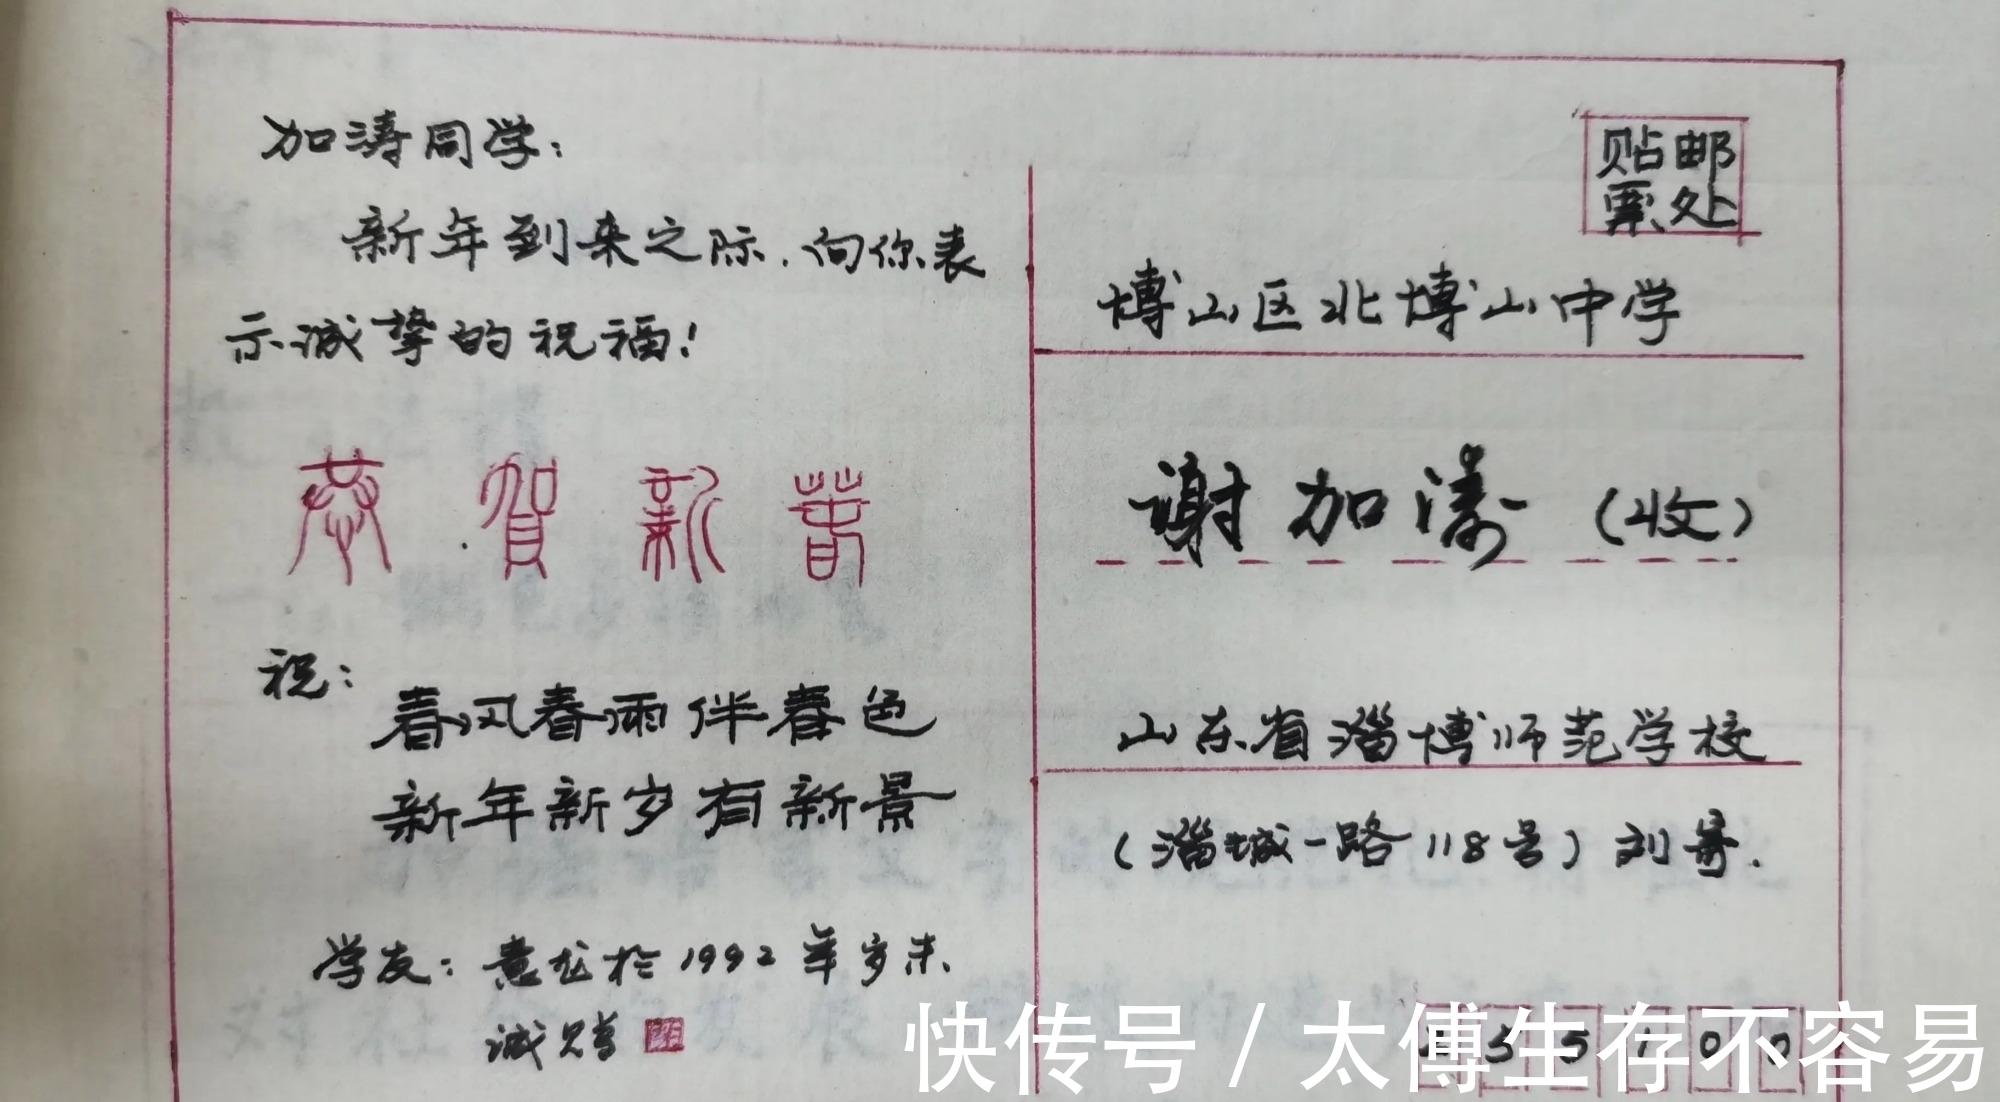 加涛同学：
新年到来之际，向你表
示诚挚的祝福！
恭贺新春
祝：
春风春雨伴春色
新年新岁有新景
学友：意龙于1992年岁末
诚赠
贴邮
票处
博山区北博山中学
谢加涛（收）
山东省淄博师范学校
（淄城一路118号）刘寄.
255100
快传号/太傅生存不容易